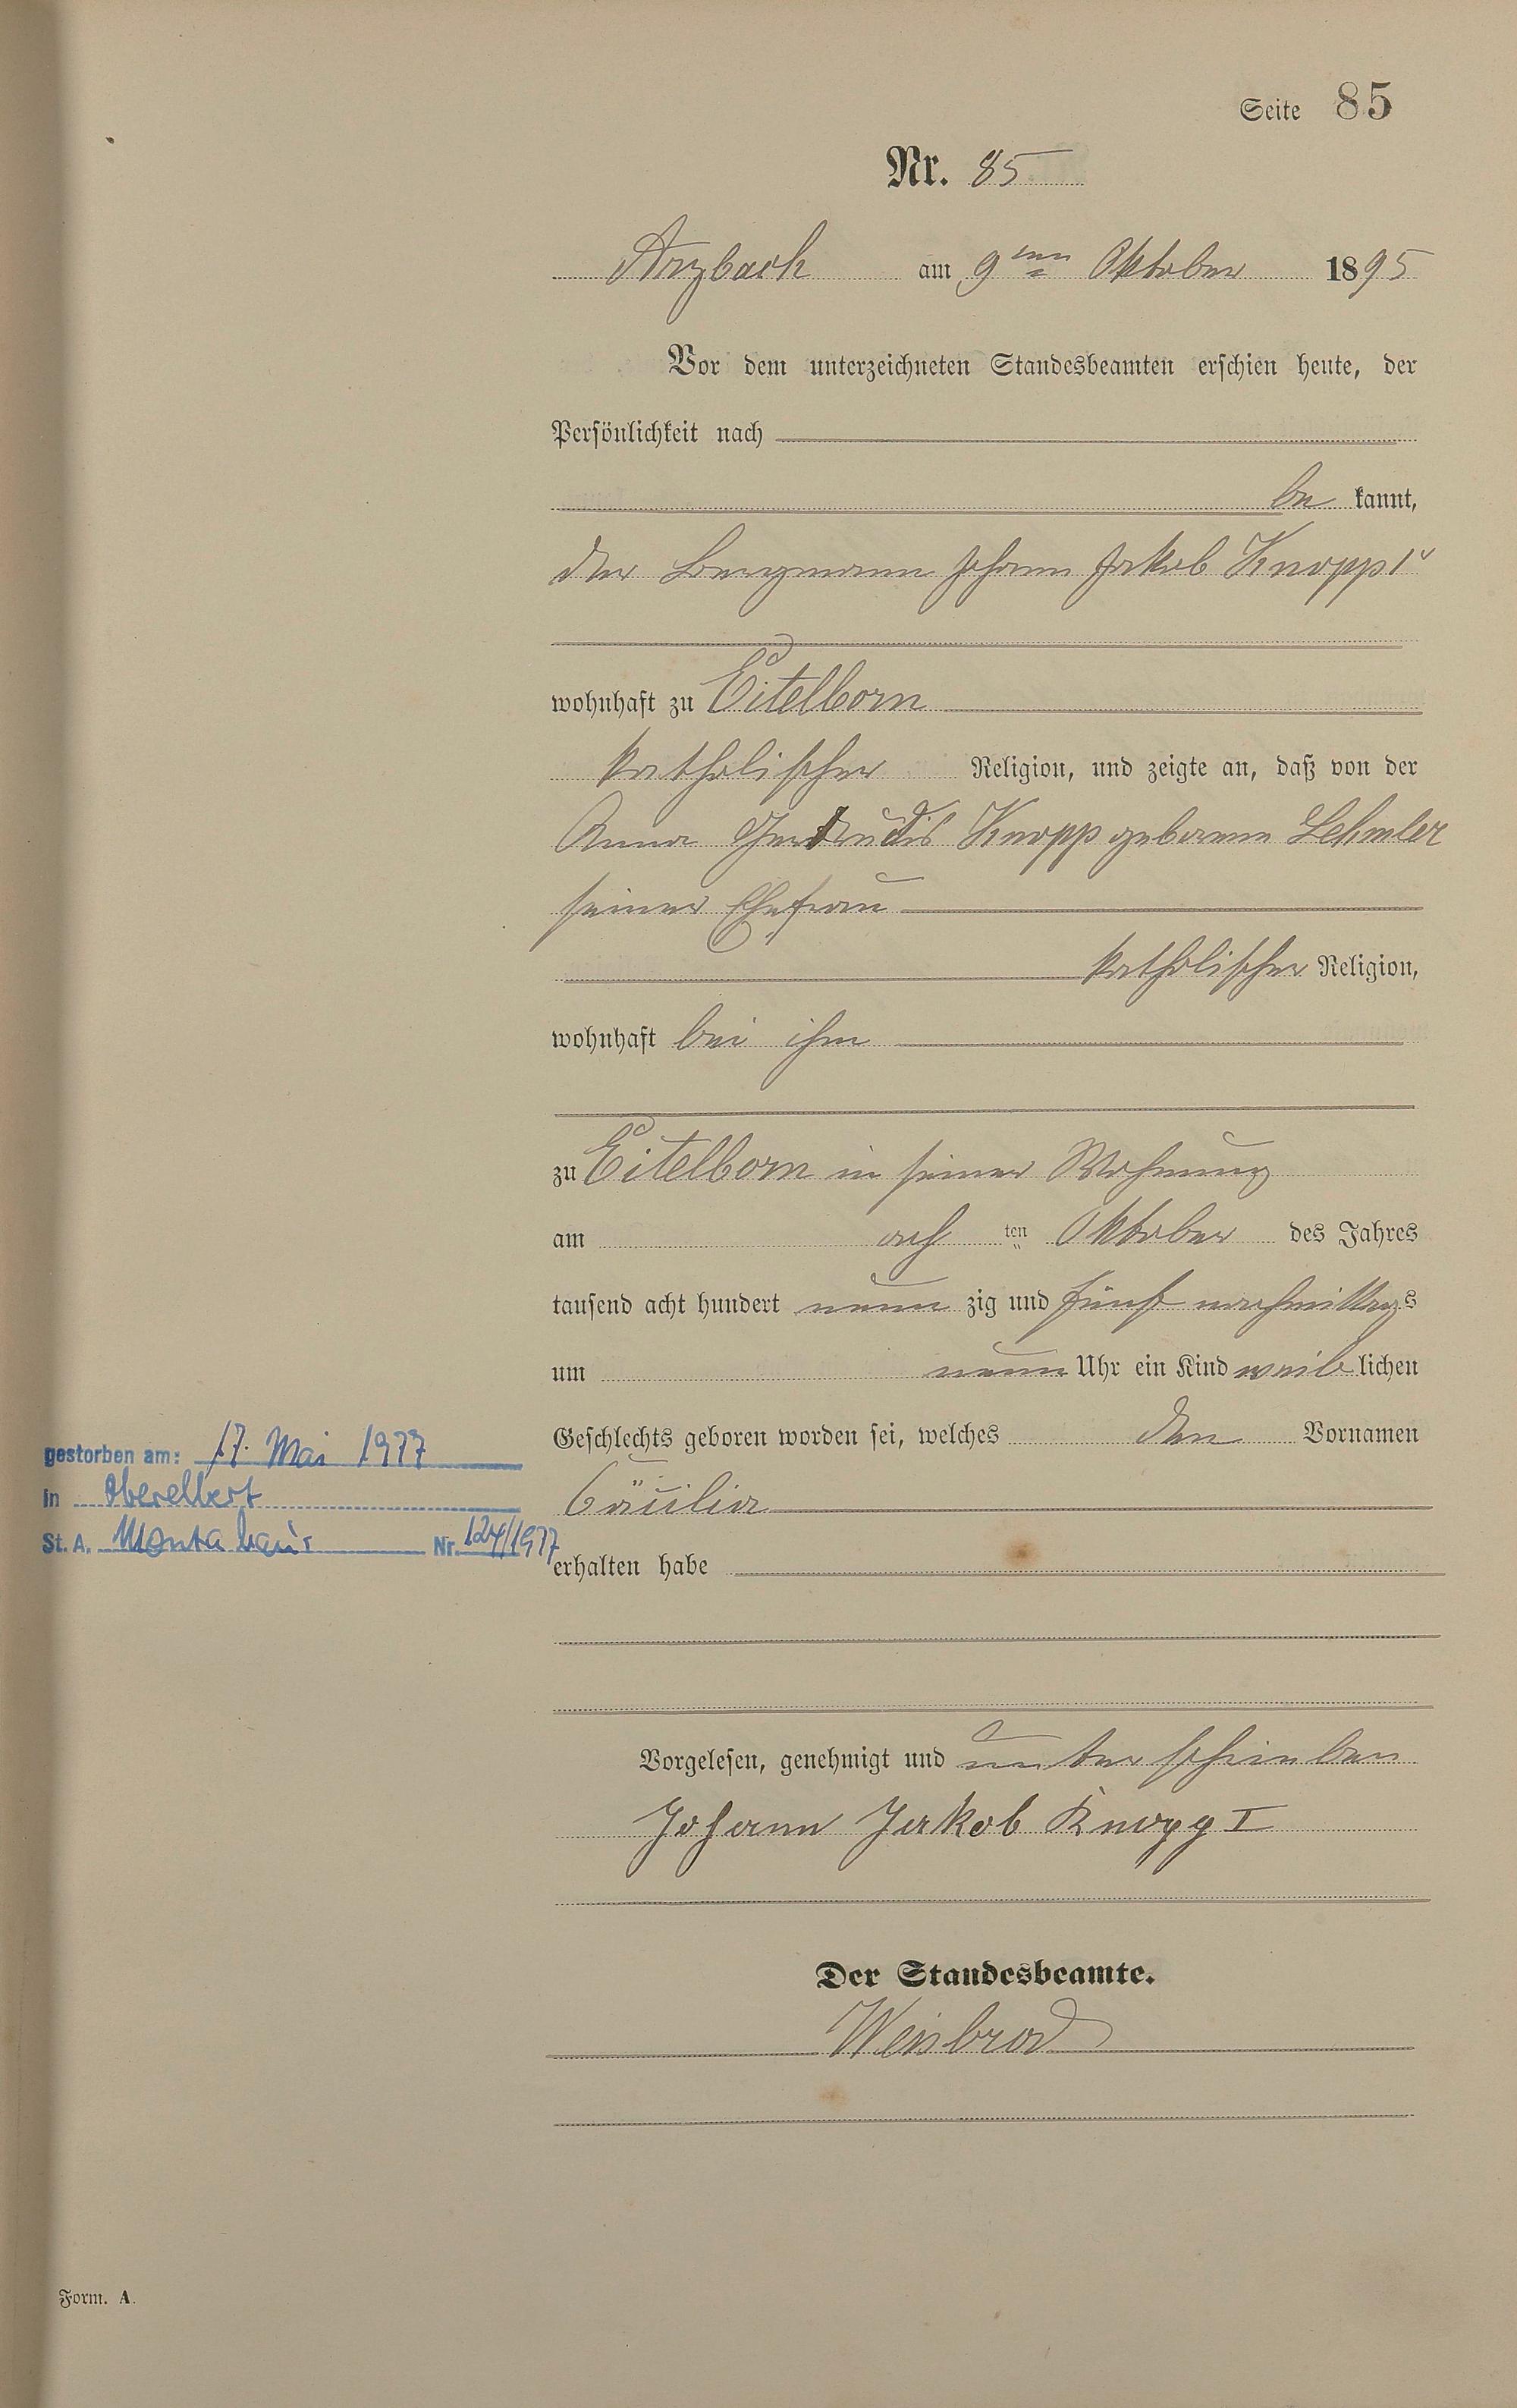 Seite 85
Nr. 85
Arzbach am 9ten Oktober 1895
Vor dem unterzeichneten Standesbeamten erschien heute, der
Persönlichkeit nach
be kannt,
der Bergmann Johann Jakob Knopp 1r
wohnhaft zu Eitelborn
katholischer Religion, und zeigte an, daß von der
Anna Gertrudis Knopp geborene Lehmler
seiner Ehefrau
katholischer Religion,
wohnhaft bei ihm
zu Eitelborn in seiner Wohnung
am ach ten Oktober des Jahres
tausend acht hundert neun zig und fünf nachmittags
um neun Uhr ein Kind weib lichen
Geschlechts geboren worden sei, welches den Vornamen
gestorben am: 17. Mai 1977
in Oberelbert
St. A. Montabaur Nr. 124/1977
Cäcilia
erhalten habe
Vorgelesen, genehmigt und unterschrieben
Johann Jakob Knopp I
Der Standesbeamte.
Weisbrod
Form. A.